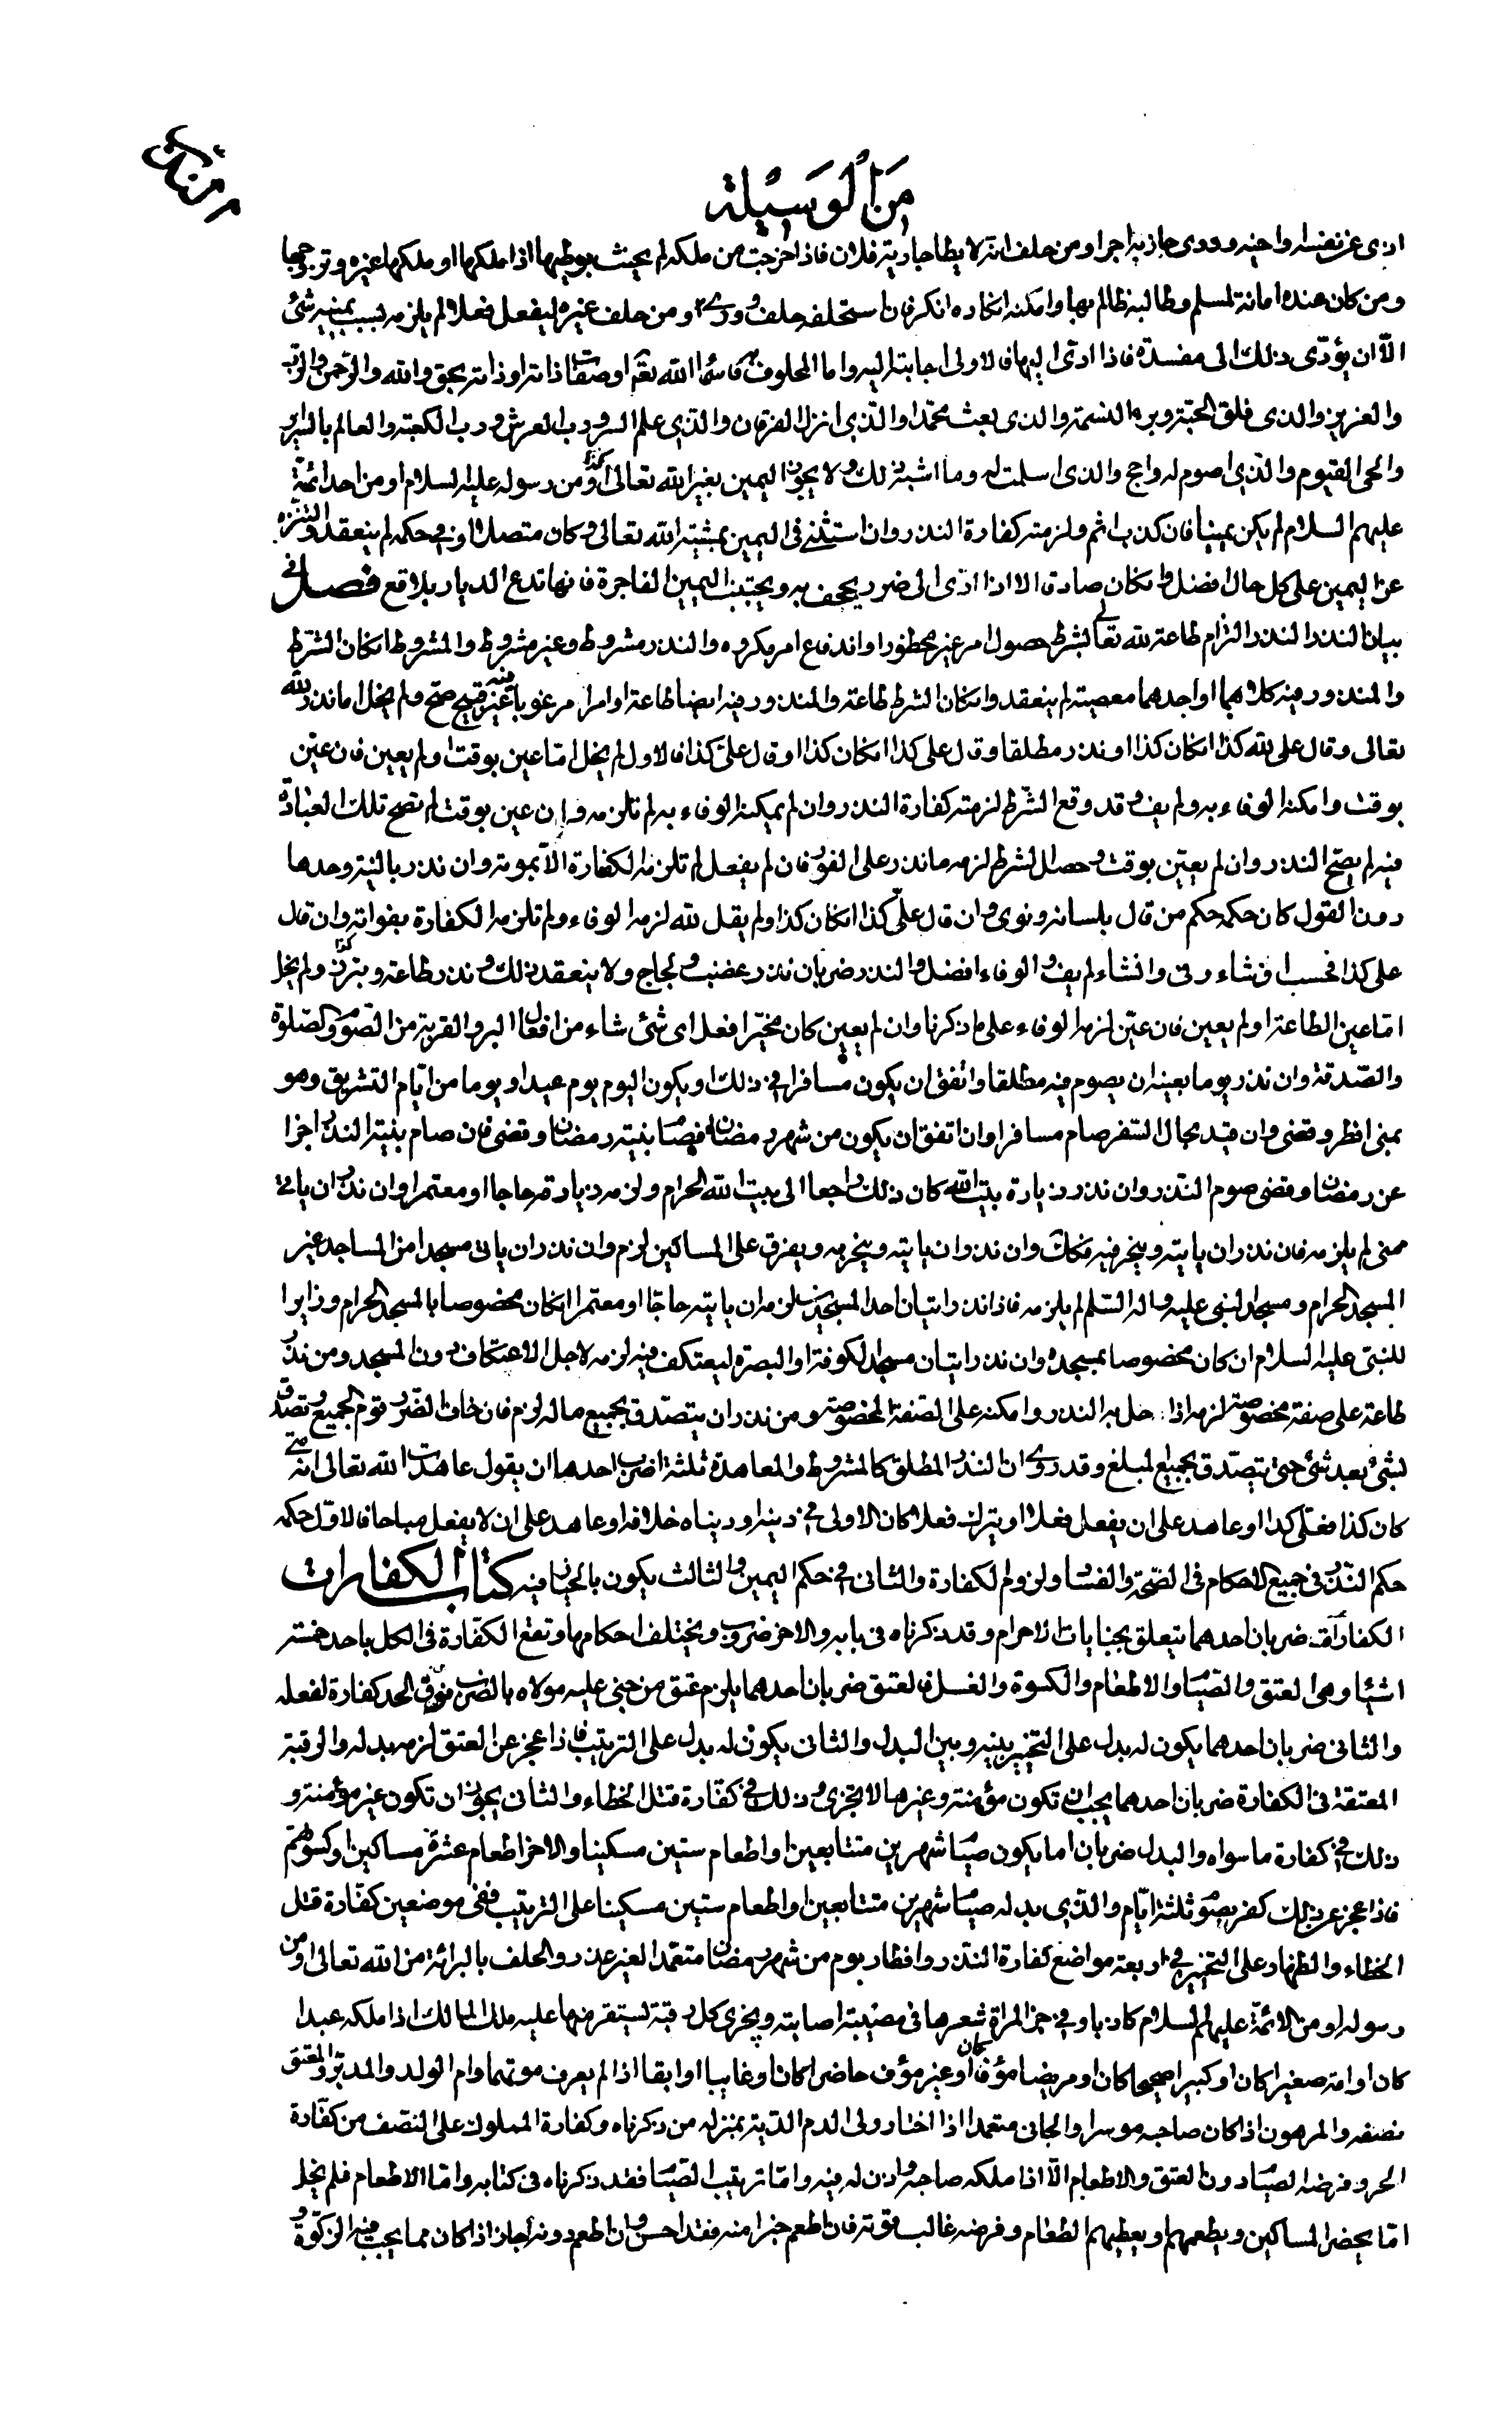 من الوسيلة
ادى عن نفسه واخيه وورى جاز به اجرا ومن حلف انه لا يطا جارية فلان فاذا خرجت من ملكه لم يحنث بوطيها اذا ملكها او ملكها غيره وتزوجها
ومن كان عنده امانة لمسلم وطالبه ظالم بها وامكنه انكاره انكر فان استحلفه حلف وورى ومن حلف غيره ليفعل فعلا لم يلزمه بسبب يمينه شئ
الا ان يؤدى ذلك الى مفسدة فاذا ادى اليها فالاولى اجابته اليه واما المحلوف به فاسماء الله تعالى او صفات ذاته او ذاته بحق والله والرحمن والرب
والعزيز والذى فلق الحبة وبرء النسمة والذى بعث محمدا والذى انزل الفرقان والذى علم السر ورب العرش ورب الكعبة والعالم بالسر
والحى القيوم والذى اصوم له واحج والذى اسلمت له وما اشبه ذلك ولا يجوز اليمين بغير الله تعالى كذا ومن رسوله عليه السلام او من احد ائمة
عليهم السلام لم يكن يمينا فان كذب اثم ولزمته كفارة النذر وان استثنى فى اليمين بمشية الله تعالى وكان متصلا او فى حكمه لم ينعقد والتنزه
عن اليمين على كل حال افضل وان كان صادقا الا اذا ادى الى ضرر يجحف به ويجتنب اليمين الفاجرة فانها تدع الديار بلاقع فصل فى
بيان النذر النذر التزام طاعة لله تعالى بشرط حصول امر غير محظور او اندفاع امر مكروه والنذر مشروط وغير مشروط والمشروط ان كان الشرط
والمنذور فيه كلاهما او احدهما معصية لم ينعقد وان كان الشرط طاعة والمنذور فيه ايضا طاعة او امرا مرغوبا فيه غير قبيح صح ولم يخل اما نذر لله
تعالى وقال على لله كذا ان كان كذا او نذر مطلقا وقال على كذا ان كان كذا او قال على كذا فالاول لم يخل اما عين بوقت او لم يعين فان عين
بوقت وامكنه الوفاء به ولم يف وقد وقع الشرط لزمته كفارة النذر وان لم يمكنه الوفاء به لم تلزمه وان عين بوقت لم تصح تلك العبادة
فيه لم يصح النذر وان لم يعين بوقت وحصل الشرط لزمه ما نذر على الفور فان لم يفعل لم تلزمه الكفارة الا بموته وان نذر بالنية وحدها
دون القول كان حكمه حكم من قال بلسانه ونوى وان قال على كذا ان كان كذا ولم يقل لله لزمه الوفاء ولم تلزمه الكفارة بفواته وان قال
على كذا فحسب ان شاء وفى وان شاء لم يف والوفاء افضل والنذر ضربان نذر غضب ولجاج ولا ينعقد ذلك ونذر طاعة وتبرر كذا ولم يخل
اما عين الطاعة او لم يعين فان عين لزمه الوفاء على ما ذكرنا وان لم يعين كان مخيرا فعل اى شئ شاء من افعال البر والقربة من الصوم والصلوة
والصدقة وان نذر يوما بعينه ان يصوم فيه مطلقا واتفق ان يكون مسافرا فى ذلك او يكون اليوم يوم عيد او يوما من ايام التشريق وهو
بمنى افطر وقضى وان قيد بحال السفر صام مسافرا وان اتفق ان يكون من شهر رمضان فصام بنية رمضان وقضى فان صام بنية النذر اجزا
عن رمضان وقضى صوم النذر وان نذر زيارة بيت الله كان ذلك راجعا الى بيت الله الحرام ولزمه زيارته حاجا او معتمرا وان نذر ان ياتى
منى لم يلزمه فان نذر ان ياتيه وينحر فيه فكذلك وان نذر ان ياتيه وينحر به ويفرق على المساكين لزم وان نذر ان ياتى مسجدا من المساجد غير
المسجد الحرام ومسجد النبى عليه واله السلم لم يلزمه فاذا نذر اتيان احد المسجدين لزمه ان ياتيه حاجا او معتمرا ان كان مخصوصا بالمسجد الحرام وزايرا
للنبى عليه السلام ان كان مخصوصا بمسجده وان نذر اتيان مسجد الكوفة او البصرة ليعتكف فيه لزمه لاجل الاعتكاف دون المسجد ومن نذر
طاعة على صفة مخصوصة لزمه اذا حل به النذر وامكنه على الصفة المخصوصة ومن نذر ان يتصدق بجميع ماله لزم فان خاف الضرر قوم الجميع وتصدق
بشئ بعد شئ حتى يتصدق بجميع المبلغ وقد روى ان النذر المطلق كالمشروط والمعاهدة ثلثة اضرب احدها ان يقول عاهدت الله تعالى انه متى
كان كذا فعلى كذا او عاهد على ان يفعل فعلا او يترك فعلا كان الاولى فى دينه او دنياه خلافه او عاهد على ان لا يفعل مباحا فالاول حكمه
حكم النذر فى جميع الاحكام فى الصحة والفساد ولزوم الكفارة والثانى فى حكم اليمين والثالث يكون بالخيار فيه كتاب الكفارات
الكفارات ضربان احدهما يتعلق بجنايات الاحرام وقد ذكرناه فى بابه والاخر ضروب ويختلف احكامها وتقع الكفارة فى الكل باحد خمسة
اشياء وهى العتق والصيام والاطعام والكسوة والغسل فالعتق ضربان احدهما يلزم عتق من جنى عليه مولاه بالضرب فوق الحد كفارة لفعله
والثانى ضربان احدهما يكون له بدل على التخيير بينه وبين البدل والثانى يكون له بدل على الترتيب فاذا عجز عن العتق لزمه بدله والرقبة
المعتقة فى الكفارة ضربان احدهما يجب ان تكون مؤمنة وغيرها لا تجزى وذلك فى كفارة قتل الخطاء والثانى يجوز ان تكون غير مؤمنة و
ذلك فى كفارة ما سواه والبدل ضربان اما يكون صيام شهرين متتابعين او اطعام ستين مسكينا والاخر اطعام عشرة مساكين او كسوتهم
فاذا عجز عن ذلك كفر بصوم ثلثة ايام والذى بدله صيام شهرين متتابعين او اطعام ستين مسكينا على الترتيب ففى موضعين كفارة قتل
الخطاء والظهار وعلى التخيير فى اربعة مواضع كفارة النذر وافطار يوم من شهر رمضان متعمدا لغير عذر والحلف بالبرائة من الله تعالى او من
رسوله او من الائمة عليهم السلام كاذبا وفى جز المراة شعرها فى مصيبة اصابته ويجزى كل رقبة يستقر منها عليه ملك المالك اذا ملكه عبدا
كان او امة صغيرا كان او كبيرا صحيحا كان او مريضا مؤفا كان او غير مؤف حاضرا كان او غايبا او ابقا اذا لم يعرف موتهما وام الولد والمدبر والمعتق
نصفه والمرهون اذا كان صاحبه موسرا والجانى متعمدا اذا اختار ولى الدم الدية بمنزله من ذكرناه وكفارة المملوك على النصف من كفارة
الحر وفرضه الصيام دون العتق والاطعام الا اذا ملكه صاحبه واذن له فيه واما ترتيب الصيام فقد ذكرناه فى كتابه واما الاطعام فلم يخل
اما يحضر المساكين ويطعمهم او يعطيهم الطعام وفرضه غالب قوته فان اطعم خيرا منه فقد احسن وان اطعم دونه جاز اذا كان مما يجب فيه الزكوة و